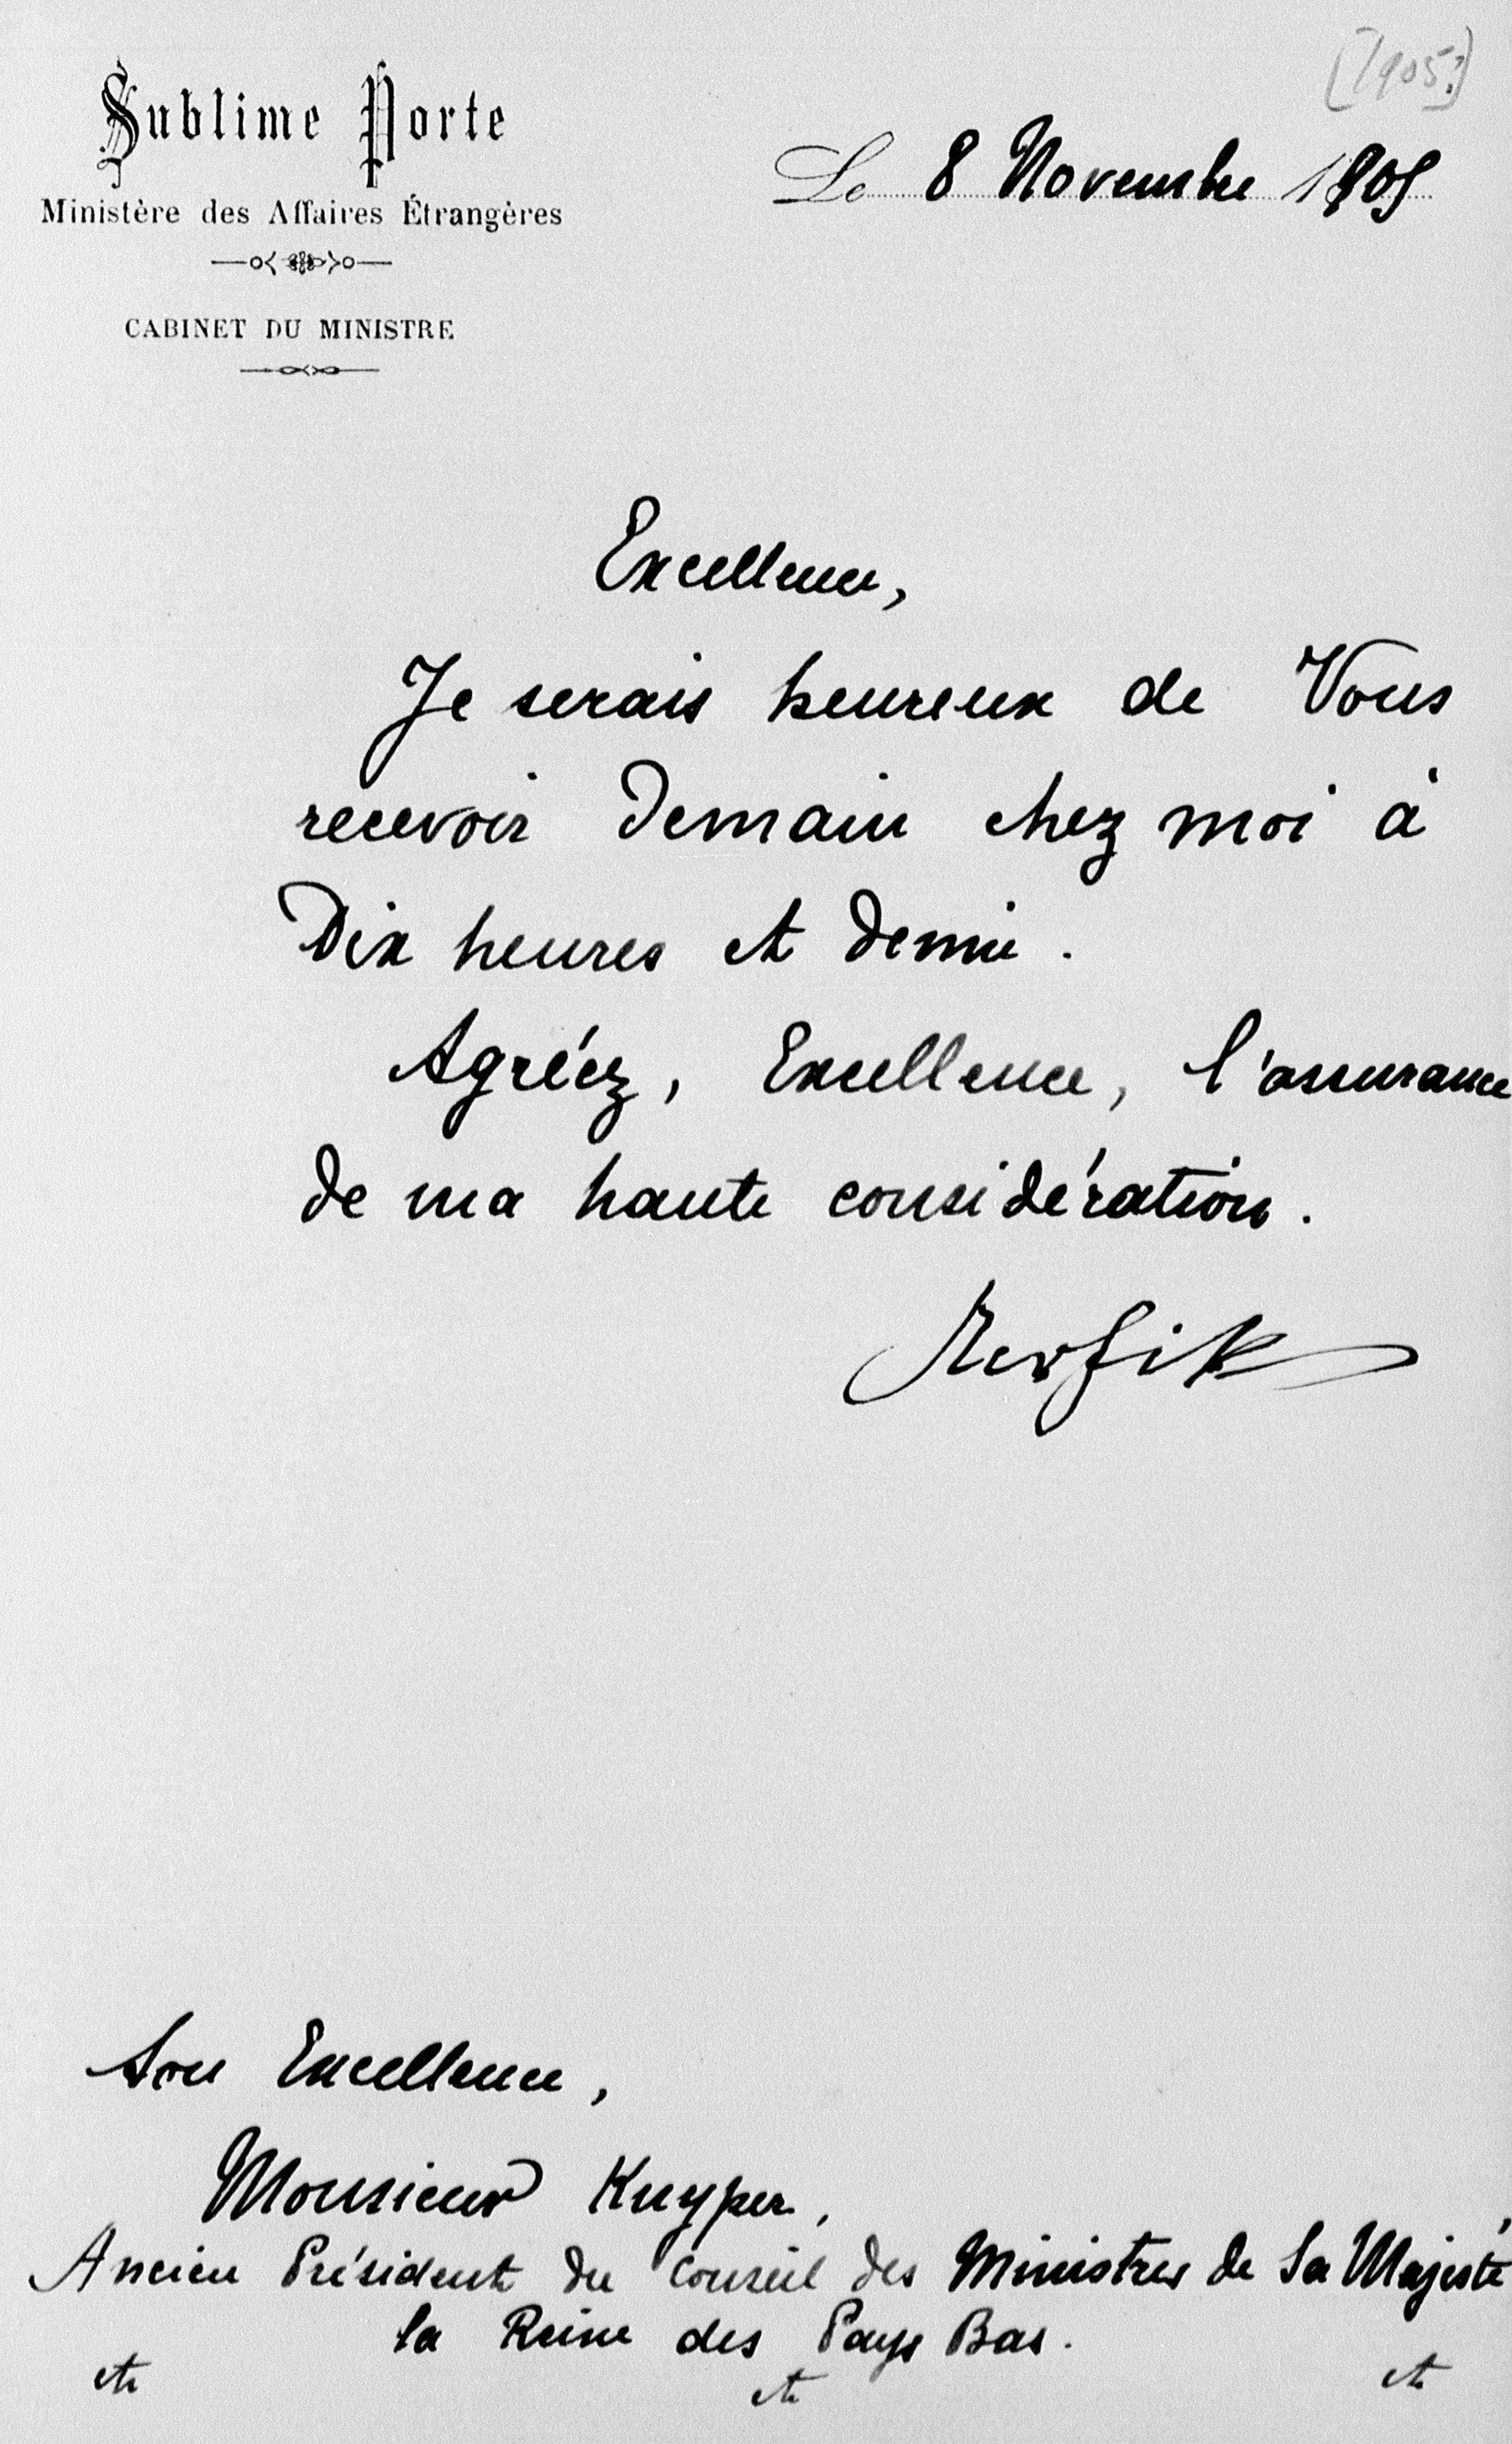 [1905?]
Sublime Porte
Ministère des Affaires Étrangères
CABINET DU MINISTRE
Le 8 Novembre 1905
Excellence,
Je serais heureux de Vous
recevoir demain chez moi à
Dix heures et demie.
Agréez, Excellence, l'assurance
de ma haute considération.
Tevfik
Son Excellence,
Monsieur Kuyper,
Ancien Président du Conseil des Ministres de Sa Majesté
la Reine des Pays Bas.
etc etc etc